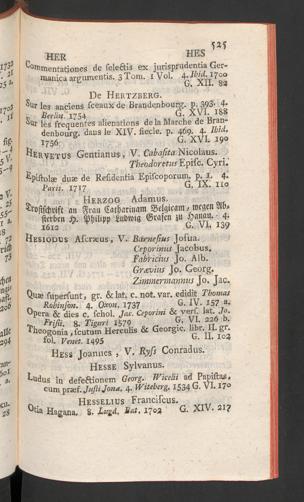 525
HER HES
Commentationes de selectis ex jurisprudentia Ger-
manica argumentis. 3 Tom. 1 Vol. 4. Ibid. 1700
G. XII. 82
DE HERTZBERG.
Sur les anciens sceaux de Brandenbourg. p. 393. 4.
Berlin. 1754 G. XVI. 188
Sur les frequentes alienations de la Marche de Bran-
denbourg. dans le XIV. siecle. p. 469. 4. Ibid.
1756 G. XVI. 190
HERVETUS Gentianus, V. Cabasita Nicolaus.
Theodoretus Episc. Cyri.
Epistolæ duæ de Residentia Episcoporum. p. 1. 4.
Paris. 1717 G. IX. 110
HERZOG Adamus.
Trostschrift an Frau Catharinam Belgicam, wegen Ab-
sterben H. Philipp Ludwig Grafen zu Hanau. 4.
1612 G. VI. 139
HESIODUS Ascræus, V. Barnesius Josua.
Ceporinus Jacobus.
Fabricius Jo. Alb.
Grævius Jo. Georg.
Zimmermannus Jo. Jac.
Quæ supersunt, gr. & lat. c. not. var. edidit Thomas
Robinson. 4. Oxon. 1737 G. IV. 157 a.
Opera & dies c. schol. Jac. Ceporini & vers. lat. Jo.
Frisii. 8. Tiguri 1579 G. VI. 226 b.
Theogonia, scutum Herculis & Georgic. libr. II. gr.
fol. Venet. 1495 G. II. 102
HESS Joannes, V. Ryss Conradus.
HESSE Sylvanus.
Ludus in defectionem Georg. Wicelii ad Papistas,
cum præf. Justi Jonæ. 4. Witeberg. 1534 G. VI. 170
HESSELIUS Franciscus.
Otia Hagana. 8. Lugd. Bat. 1702 G. XIV. 217